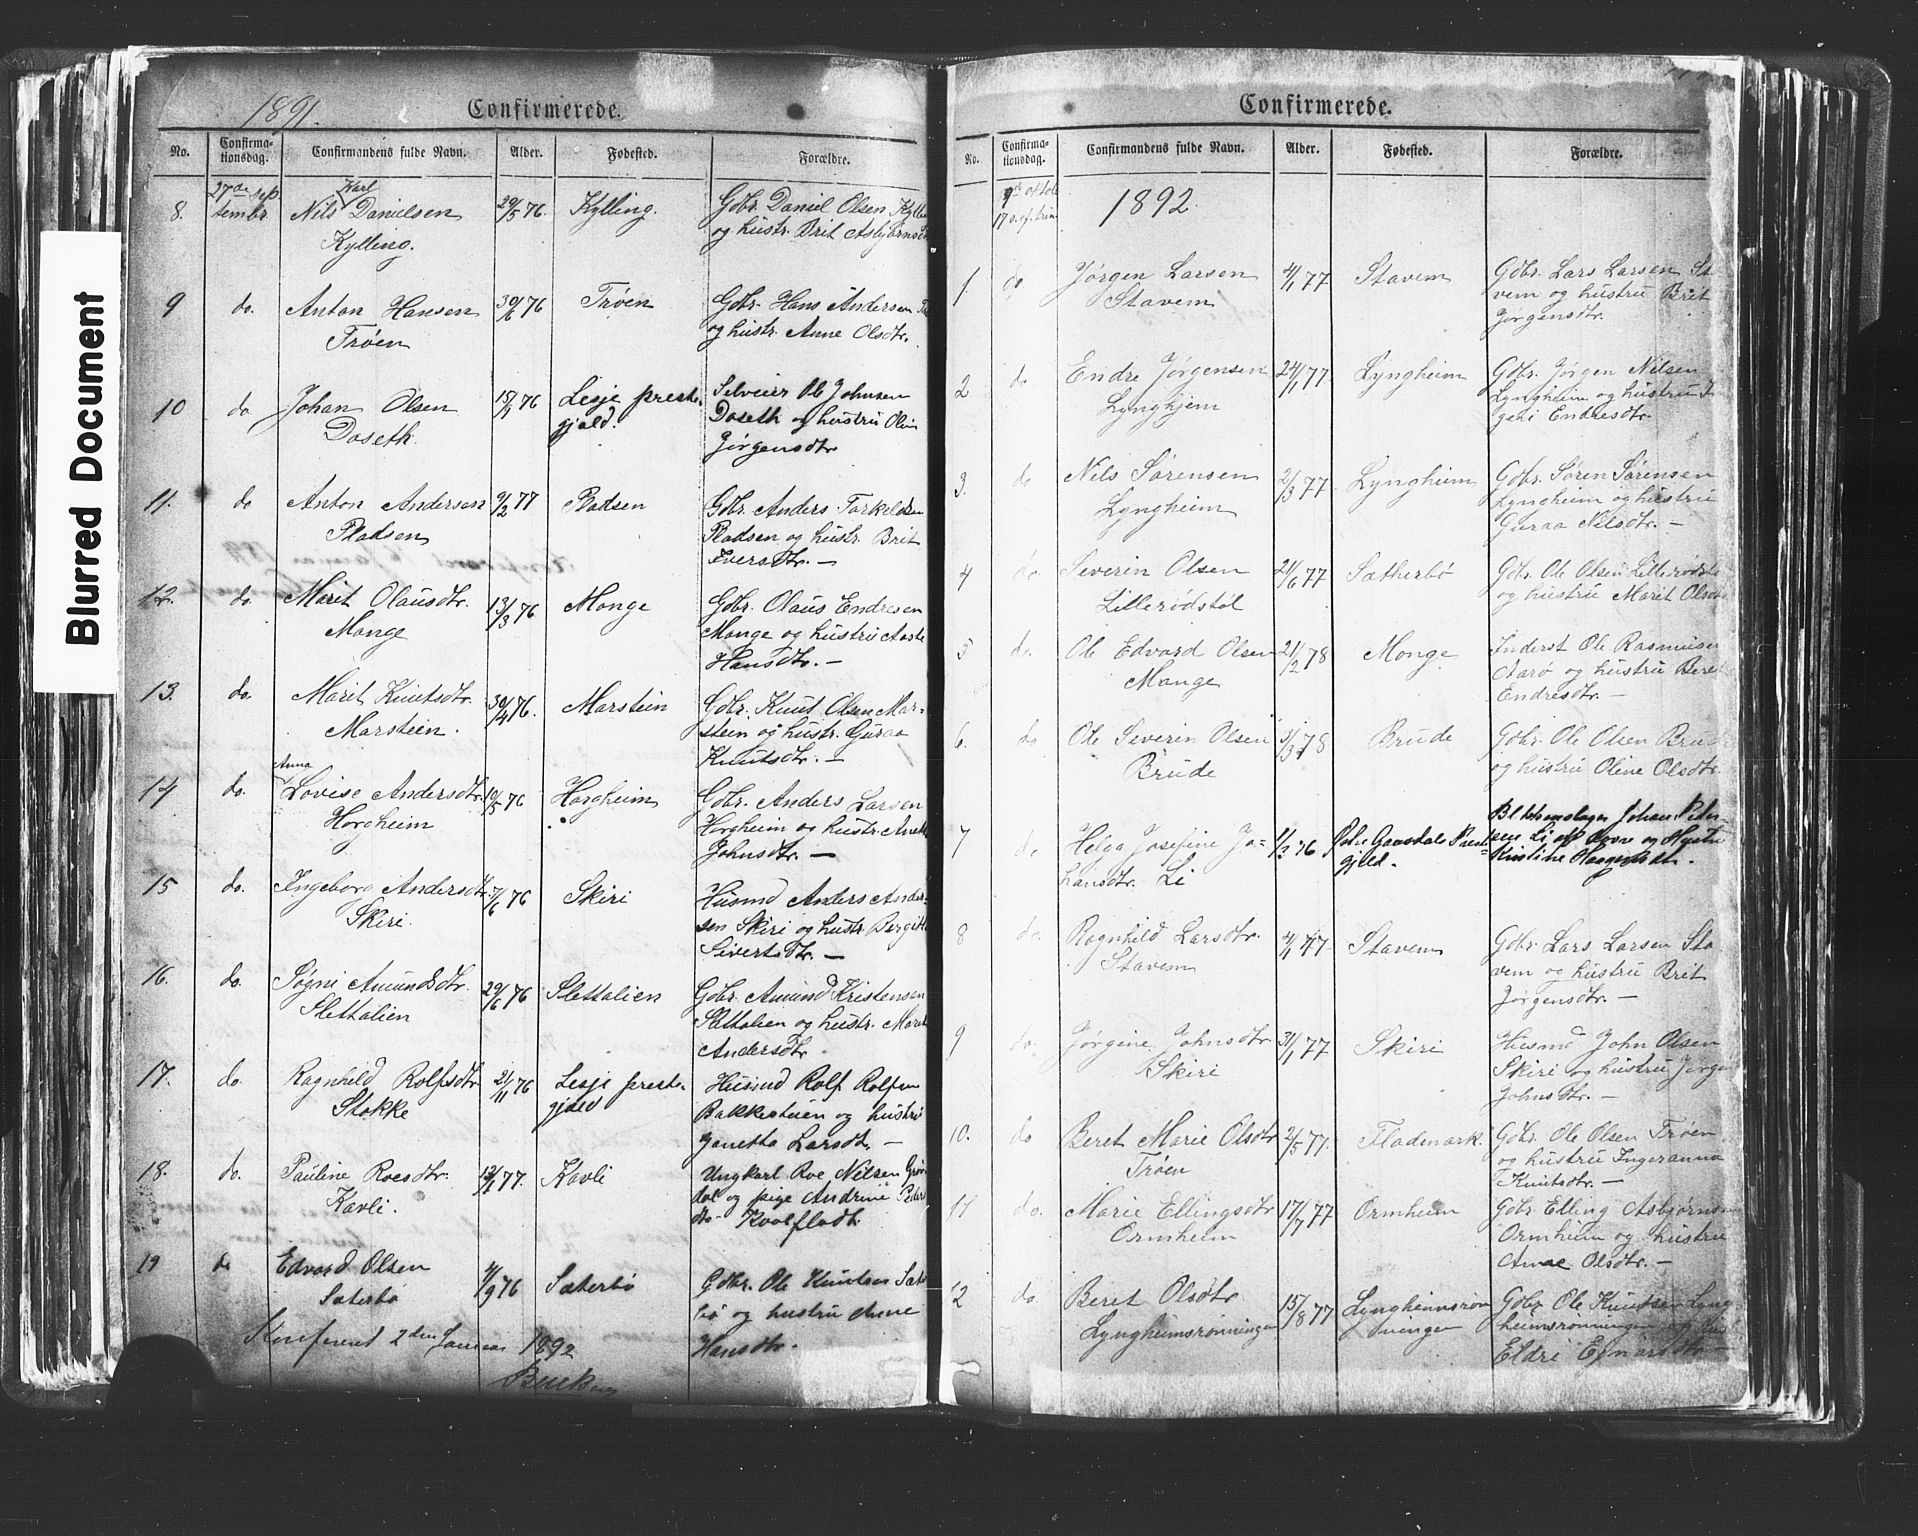 Blurred Document
1891.
Confirmerede.
No. Confirma-tionsdag. Confirmandens fulde Navn. Alder. Fødested. Forældre.
8. 27de sep tembr. Nils Karl Danielsen 29/5 76. Kylling. Gdbr. Daniel Olsen
Kylling. og hustr. Brit
9 do. Anton Hansen 30/6 76 Trøen Gdbr. Hans Andersen
Trøen og hustr. Anne Olsdtr.
10 do. Johan Olsen 15/1 76 Lesje preste- Selveier Ole Johnsen
Doseth. gjæld. Doseth og hustru
Jørgensdtr
11. do Anton Andersen 9/2 77 Fladsen Gdbr. Anders
Fladsen Fladsen og hustr. Brit
Iversdtr. —
12. do. Marit Olausdtr. 13/3 76 Monge Gdbr. Olaus Endresen
Monge Monge og hustru
Hansdtr. —
13. do. Marit Knutsdtr. 30/4 76. Marstein Gdbr. Knut Olsen Mar-
Marstein. stein og hustr. Guraa
Knutsdtr. —
14 do. Anna Lovise Andersdtr. 10/5 76 Horgheim Gdbr. Anders Larsen
Horgheim Horgheim og hustr.
Johnsdtr. —
15 do. Ingeborg Andersdtr 7/6 76 Skiri Husmd Anders Ander-
Skiri. sen Skiri og hustr.
Sivertsdtr. —
16. do. Søgni Amundsdtr. 29/6 76 Slettalien Gdbr. Amund Kristensen
Slettalien Slettalien og hustr. Marit
Andersdtr.
17. do. Ragnhild Rolfsdtr 21/11 76 Lesje preste- Husmd Rolf Rolfsen
Stokke gjæld Bakkesteien og hustru
Janetta Larsdtr. —
18. do. Pauline Roesdtr. 77. Kavli Ungkarl Roe Nilsen
Kavli. og pige Andrine
19 do Edvard Olsen 4/9 76 Sæterbø Gdbr. Ole Knutsen
Sæterbø og hustru Anne
Konfereret 2den Januar 1892 Hansdtr.
Confirmerede.
No. Confirma-tionsdag. Confirmandens fulde Navn. Alder. Fødested. Forældre.
1892.
1 do Jørgen Larsen 4/1 77 Stavem Gdbr. Lars Larsen Sta
Stavem vem og hustru Brit
Jørgensdtr.
2 do Endre Jørgensen 24/1 77. Lyngheim Gdbr. Jørgen Nilsen
Lynghjem Lyngheim og hustru
Endresdtr.
3. do Nils Sørensen 2/3 77 Lyngheim Gdbr. Søren Sørensen
Lyngheim Lyngheim og hustru
Guraa Nilsdtr. —
4 do. Severin Olsen 21/6 77 Sætherbø Gdbr. Ole Olsen
Lillerødstøl og hustru Marit
5 do. Ole Edvard Olsen 21/2 78 Monge Inderst Ole Rasmusen
Monge og hustru
Endresdtr. —
6. do Ole Severin Olsen 5/3 78 Brude Gdbr. Ole Olsen
Brude og hustru Oline Olsdtr.
7 do Helga Josefine Jo- 1/3 76 Gausdals Prest- Johan
hansdtr. Li gjeld. Li af Dovre og Hustru
Kristine
8 do. Ragnhild Larsdtr. 4/1 77 Stavem Gdbr. Lars Larsen Sta
Stavem vem og hustru Brit
Jørgensdtr. —
9 do. Jørgine Johnsdtr 31/1 77 Skiri Husmd John Olsen
Skiri Skiri og hustru
Johnsdtr. —
10. do Beret Marie Olsdtr 2/5 77. Flademark. Gdbr. Ole Olsen Trøen
Trøen og hustru Ingeranna
Knutsdtr. —
11 do. Marie Ellingsdtr 17/7 77 Ormheim Gdbr. Elling
Ormheim Ormheim og hustru
Anne Olsdtr. —
12 do. Beret Olsdtr. 15/8 77 Lyngheimsrøn Gdbr. Ole Knutsen
Lyngheimsrønningen ningen
Eldri